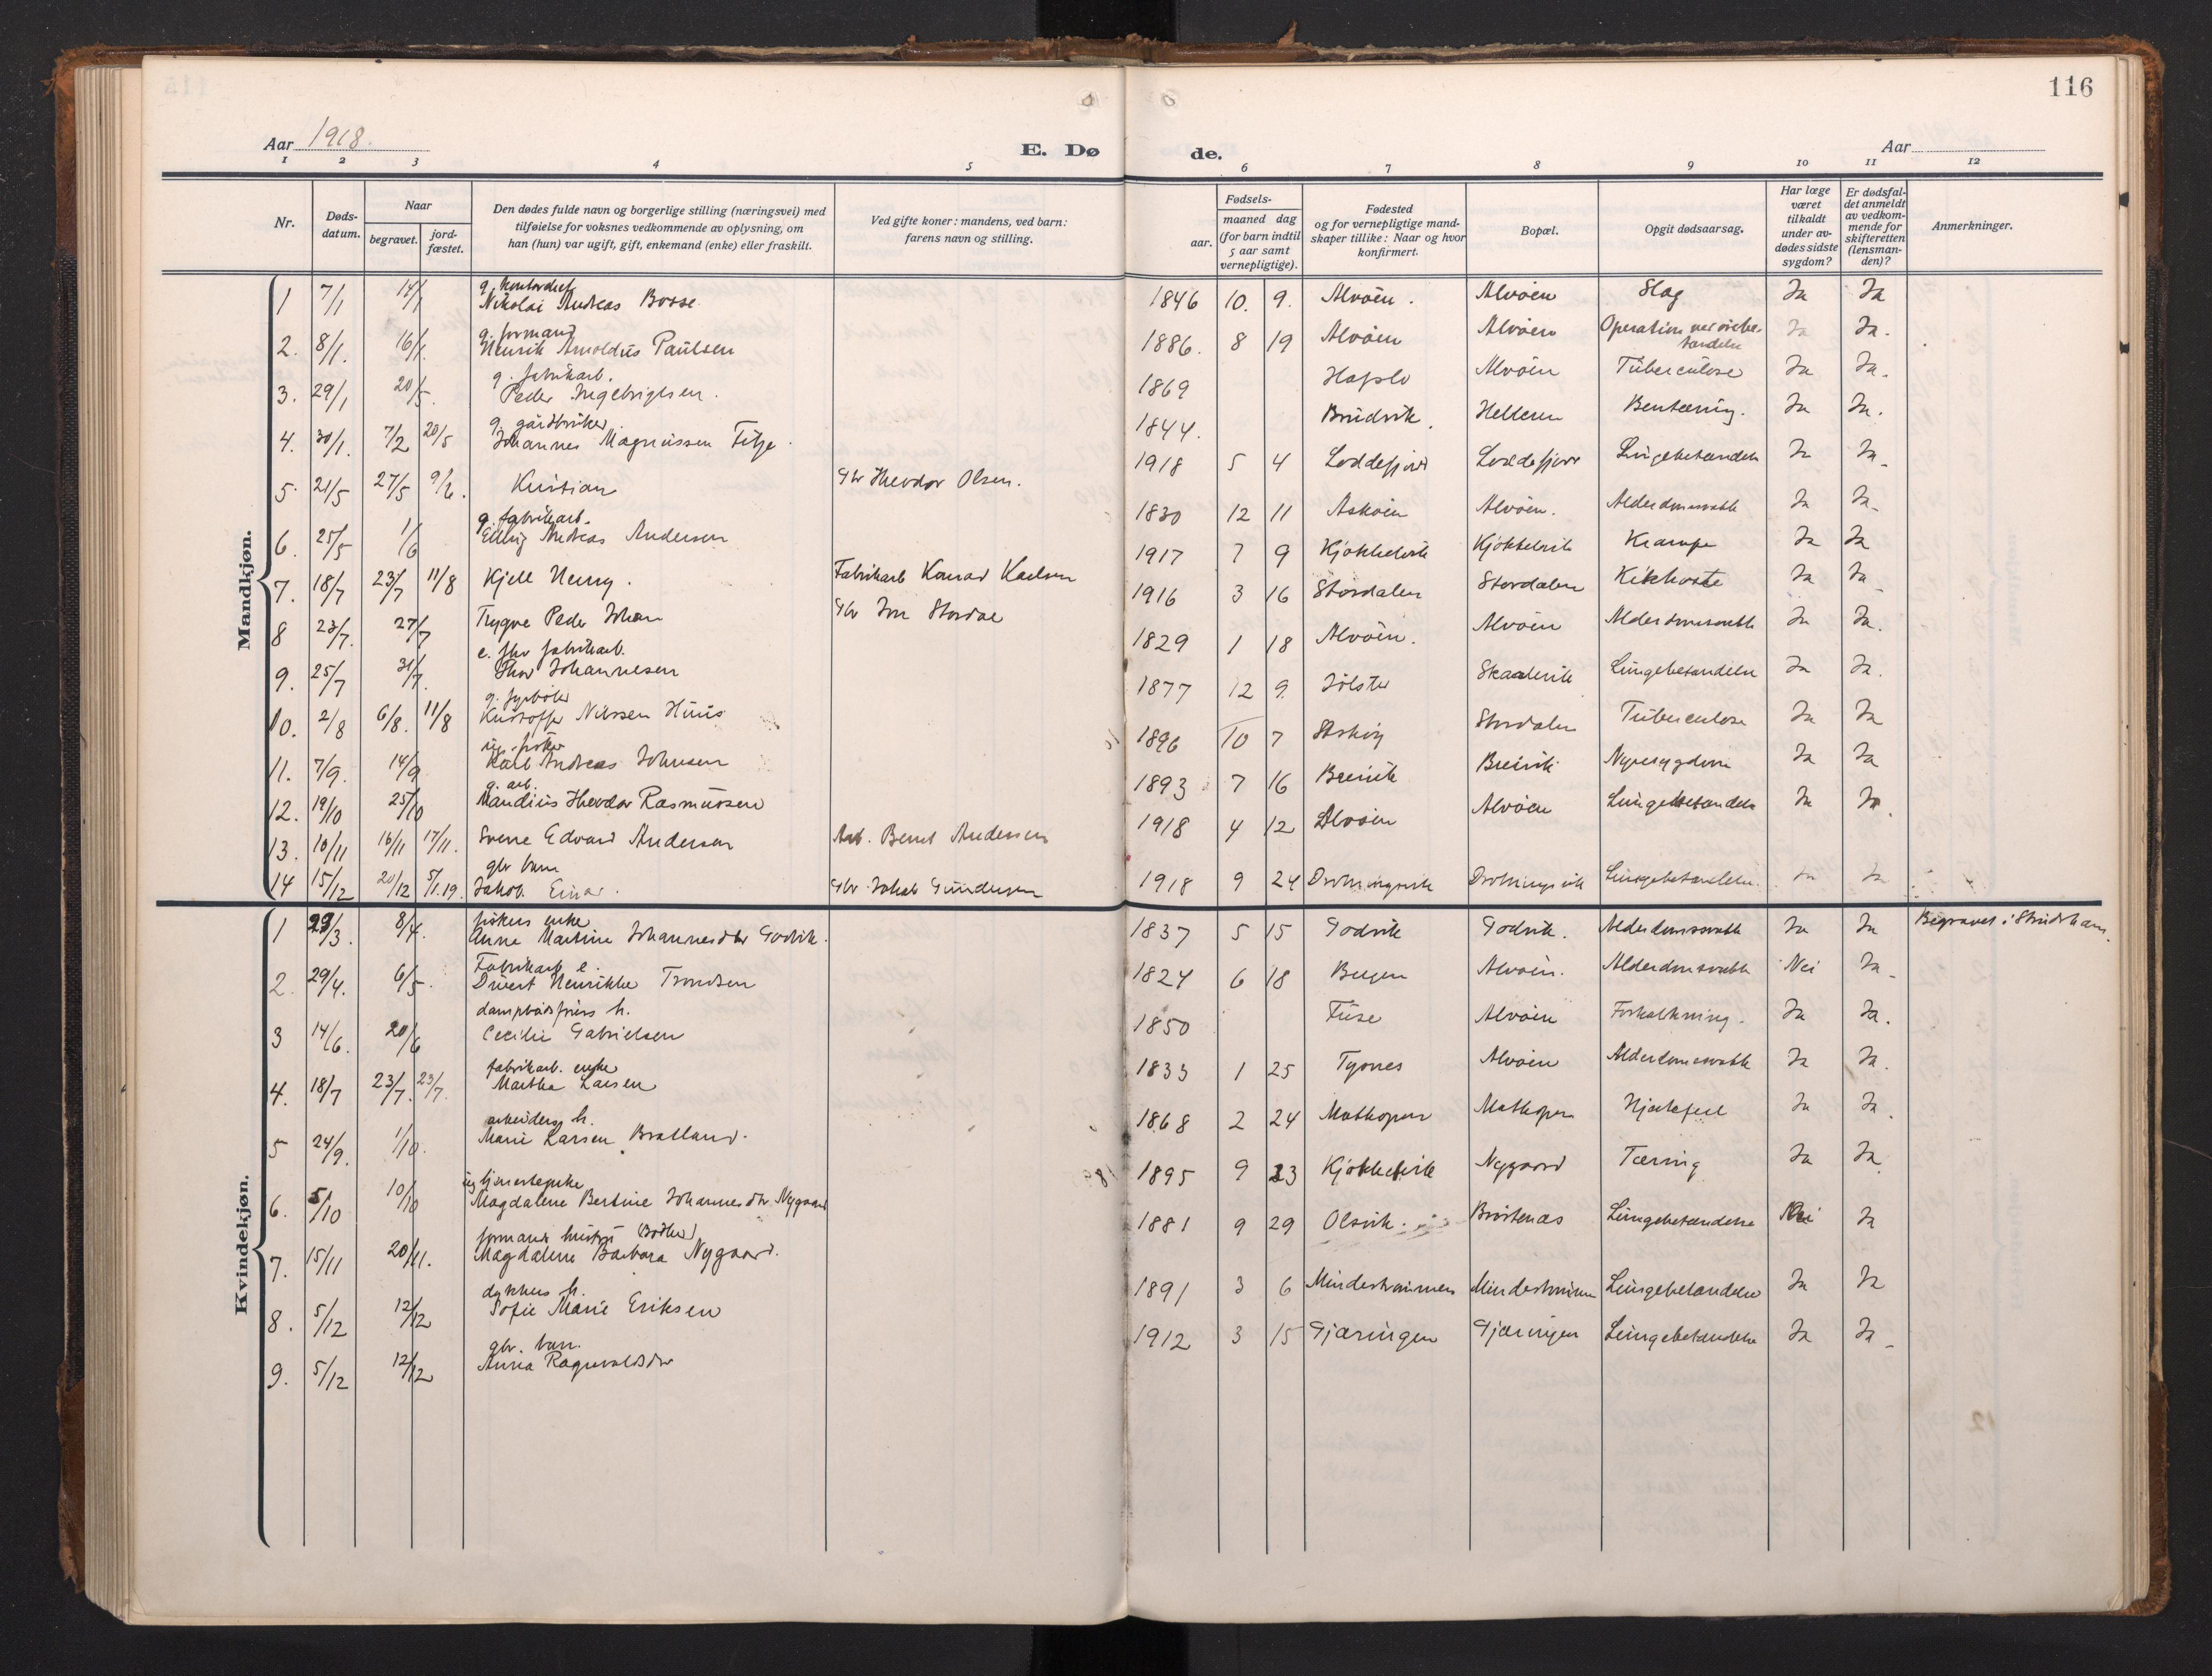 116
Aar 1918.
E. Dø
de.
Aar
1 2 3 4 5 6 7 8 9 10 11 12
Nr.
Døds-
datum.
Naar
begravet.
jord-
fæstet.
Den dødes fulde navn og borgerlige stilling (næringsvei) med
tilføielse for voksnes vedkommende av oplysning, om
han (hun) var ugift, gift, enkemand (enke) eller fraskilt.
Ved gifte koner: mandens, ved barn:
farens navn og stilling.
Fødsels-
aar.
maaned dag
(for barn indtil
5 aar samt
vernepligtige).
Fødested
og for vernepligtige mand-
skaper tillike: Naar og hvor
konfirmert.
Bopæl.
Opgit dødsaarsag.
Har læge
været
tilkaldt
under av-
dødes sidste
sygdom?
Er dødsfal-
det anmeldt
av vedkom-
mende for
skifteretten
(lensman-
den)?
Anmerkninger.
Mandkjøn.
1 7/1 14/1 g.
Nikolai Andreas Bosse 1846 10. 9. Alvøen. Alvøen Slag Ja Ja
g. formand
2. 8/1. 16/1. Henrik Arnoldus Paulsen 1886. 8 19 Alvøen Alvøen Operation Ja Ja.
g. fabrikarb.
3. 29/1 20/5. Peder Ingebrigtsen. 1869 Hafslo Alvøen Tuberculose Ja Ja.
g. gårdbruker
4. 30/1. 7/2 20/5 Johannes Magnussen Titje. 1844. Bruvik. Helleren Bentæring. Ja Ja.
5. 21/5 27/5 9/6. Kristian Gbr Theodor Olsen. 1918 5 4 Loddefjord Loddefjord Lungebetændelse Ja Ja.
g. fabrikarb.
6. 25/5 1/6 Elling Andreas Andersen 1830 12 11 Askøen Alvøen. Alderdomssvakk Ja Ja.
7. 18/7 23/7 11/8 Kjell Henry. Fabrikarb Konrad Karlsen 1917 7 9 Kjøkkelvik Kjøkkelvik Krampe Ja Ja
8 23/7. 27/7 Trygve Peder Johan Gbr Jon Stordal 1916 3 16 Stordalen Stordalen Kikhoste Ja Ja
e. fhv fabrikarb.
9. 25/7 31/7. Thor Johannesen 1829 1 18 Alvøen. Alvøen Alderdomssvakk Ja Ja.
g. fyrbøter
10. 2/8 6/8. 11/8 Kristoffer Nilssen Huus 1877 12 9. Jølster Skaalevik Lungebetændelse Ja Ja.
ug. fisker
11. 7/9. 14/9 Karl Andreas Johnsen 1896 10 7 Askøy Stordalen Tuberculose Ja Ja
g. arb.
12. 19/10 25/10 Mandius Theodor Rasmussen 1893 7 16 Breivik Breivik Nyresygdom Ja Ja
13. 10/11 16/11 17/11. Sverre Edvard Andersen Arb. Bernt Andersen 1918 4 12 Alvøen Alvøen Lungebetændelse Ja Ja.
gbr barn
14 15/12 20/12 5/1.19. Jakob Einar. Gbr Jakob Gundersen 1918 9 24 Drotningsvik Drotningsvik Lungebetændelse. Ja Ja
Kvindekjøn.
fiskers enke
1 29/3. 8/4. Anna Martine Johannesdtr Godvik. 1837 5 15 Godvik Godvik. Alderdomssvakk Ja Ja Begravet i
Fabrikarb e.
2. 29/4. 6/5. Henrikke Trondsen 1824 6 18 Bergen Alvøen. Alderdomssvakk Nei Ja
h.
3 14/6. 20/6 Cecilie Gabrielsen 1850 Fuse Alvøen Forkalkning. Ja Ja.
fabrikarb. enke
4. 18/7 23/7. 23/7. Martha Larsen 1833 1 25 Tysnes Alvøen Alderdomssvakk Ja Ja.
arbeiders h.
5 24/9. 1/10. Marie Larsen Bratland. 1868 2 24 Mathopen Mathopen Hjertefeil Ja Ja.
ug tjenestepike
6. 5/10 10/10 Magdalene Bertine Johannesdtr Nygaard 1895 9 23 Kjøkkelvik Nygaard Tæring Ja Ja.
formands hustru (Bødker)
7. 15/11 20/11. Magdalene Barbara Nygaard. 1881 9 29 Olsvik. Brøstenæs Lungebetændelse Nei Ja
dykkers h.
8. 5/12 12/12 Sofie Marie Eriksen 1891 3 6 Mindeshavnen Lungebetændelse Ja Ja
gbr. barn.
9. 5/12 12/12 Anna Ragnvaldsdtr 1912 3 15 Gjæringen Gjæringen Lungebetændelse Ja Ja